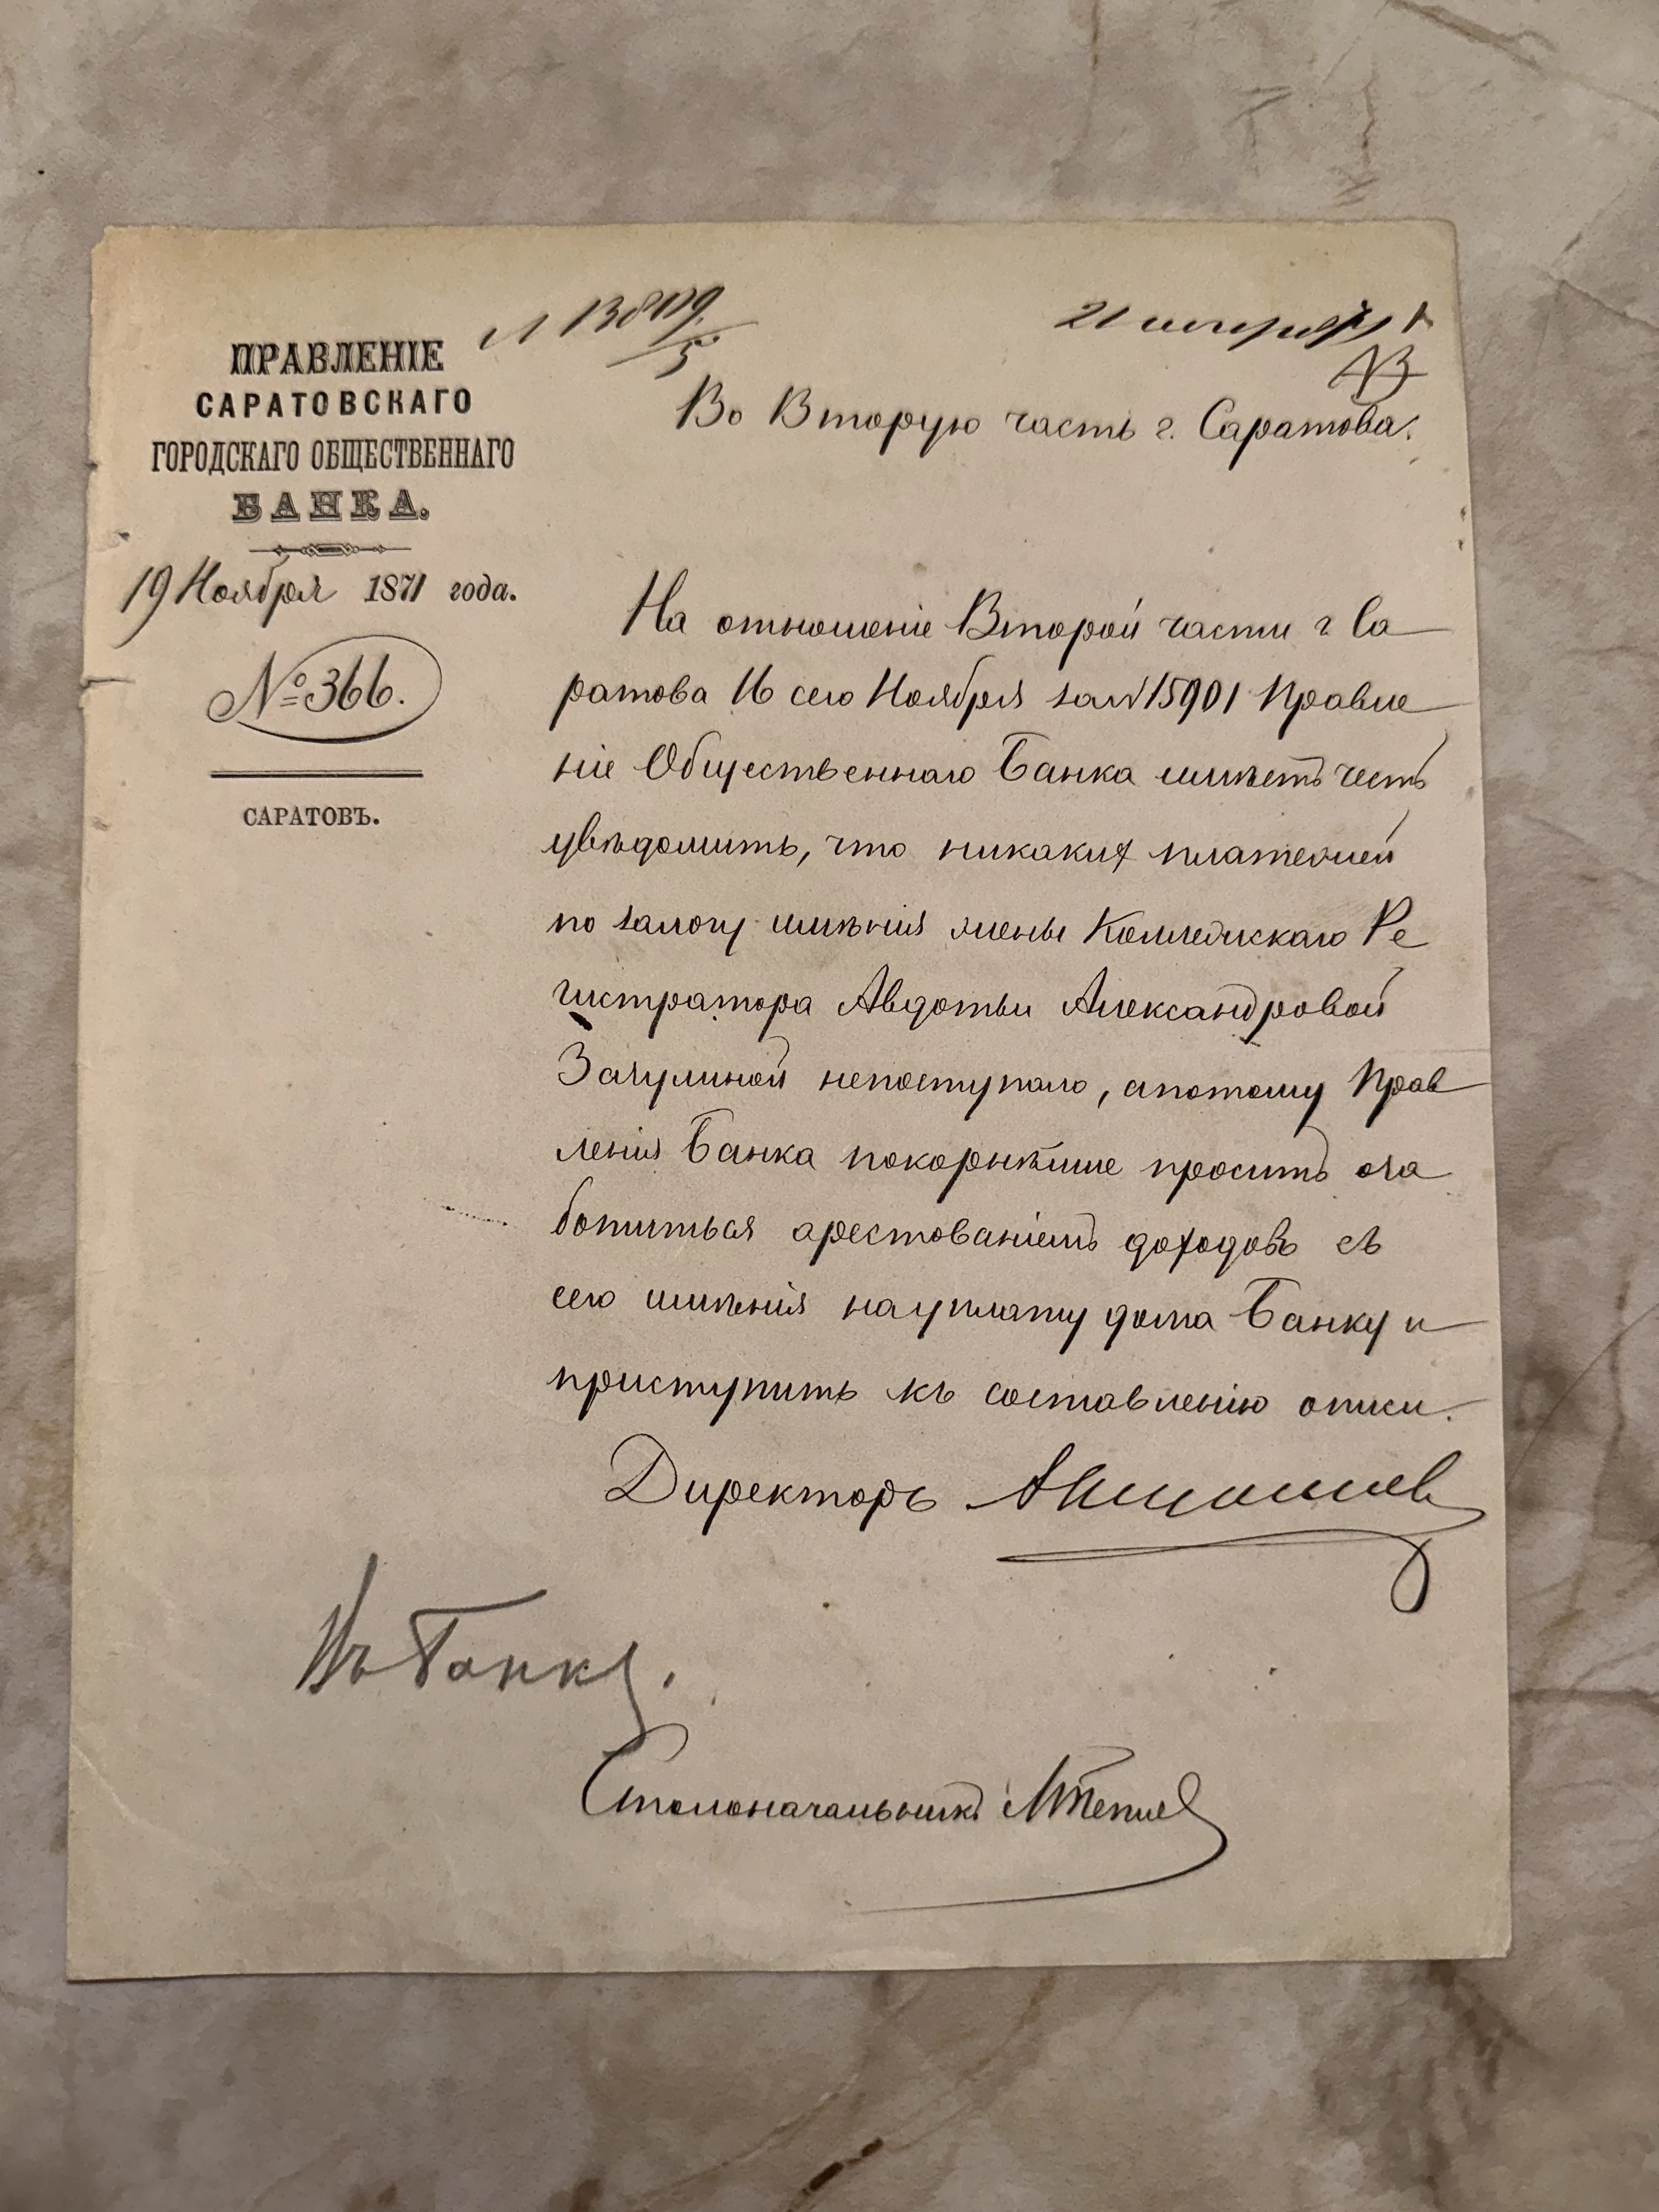 21
ПРАВЛЕНІЕ
САРАТОВСКАГО
ГОРОДСКАГО ОБЩЕСТВЕННАГО
БАНКА.
19 Ноября 1871 года.
№ 366.
САРАТОВЪ.
Во Вторую часть г. Саратова.
На отношеніе Второй части г Са
ратова 16 сего Ноября за № 15901 Правле
ніе Общественнаго Банка имѣетъ честь
увѣдомить, что никаких платежей
по залогу имѣнія жены Коллежскаго Ре
гистратора Авдотьи Александровой
непоступало, апотому Прав
ленія Банка покорнѣйше проситъ оза
ботиться арестованіемъ доходовъ съ
сего имѣнія науплату Банку и
приступить къ составленію описи.
Директоръ
Въ Банку.
Столоначальникъ